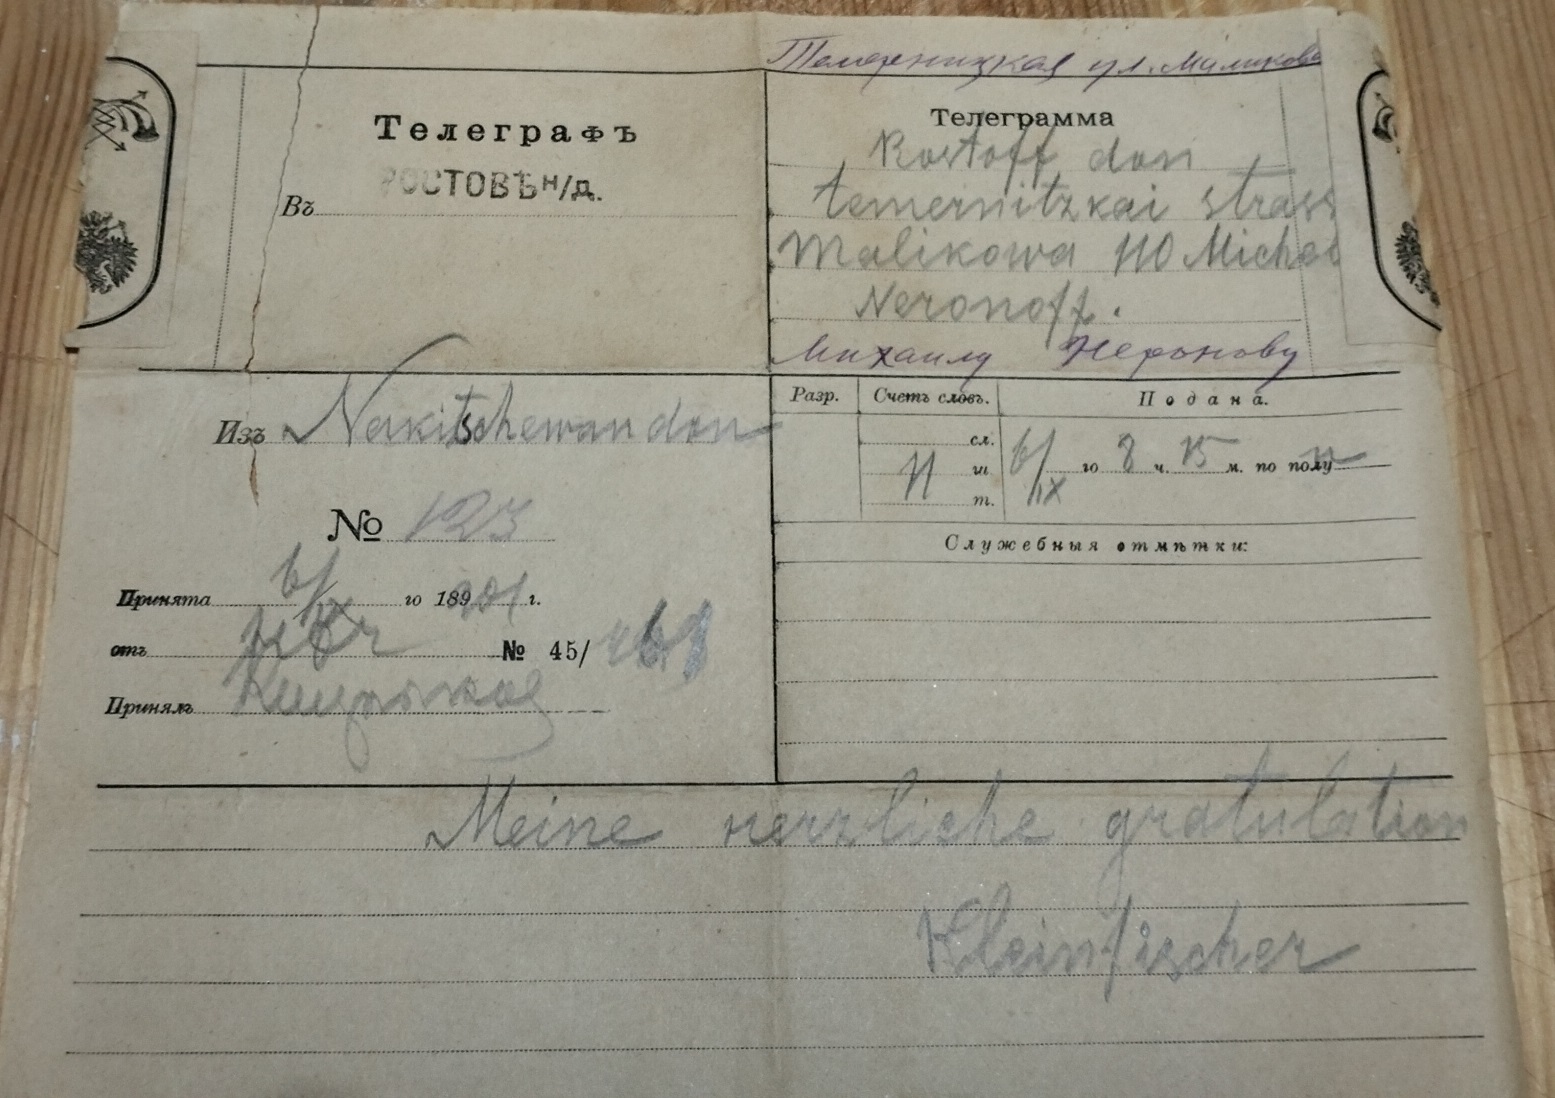 Темерницкая ул. Маликова
Телеграфъ
Въ РОСТОВЪ н/д.
Телеграмма
Rostoff don
temernitzkai strass
Malikowa 110 Michel
Neronoff.
Михаилу Неронову
Изъ Nakitschewan don
№ 123
Принята 6/IX го 189 901 г.
отъ № 45/
Принялъ
Разр.
Счетъ словъ.
Подана.
сл.
11 ш
т.
6/IX го 8 ч. 15 м. по полу
Служебныя отмѣтки:
Meine herzliche gratulation
Kleinfischer